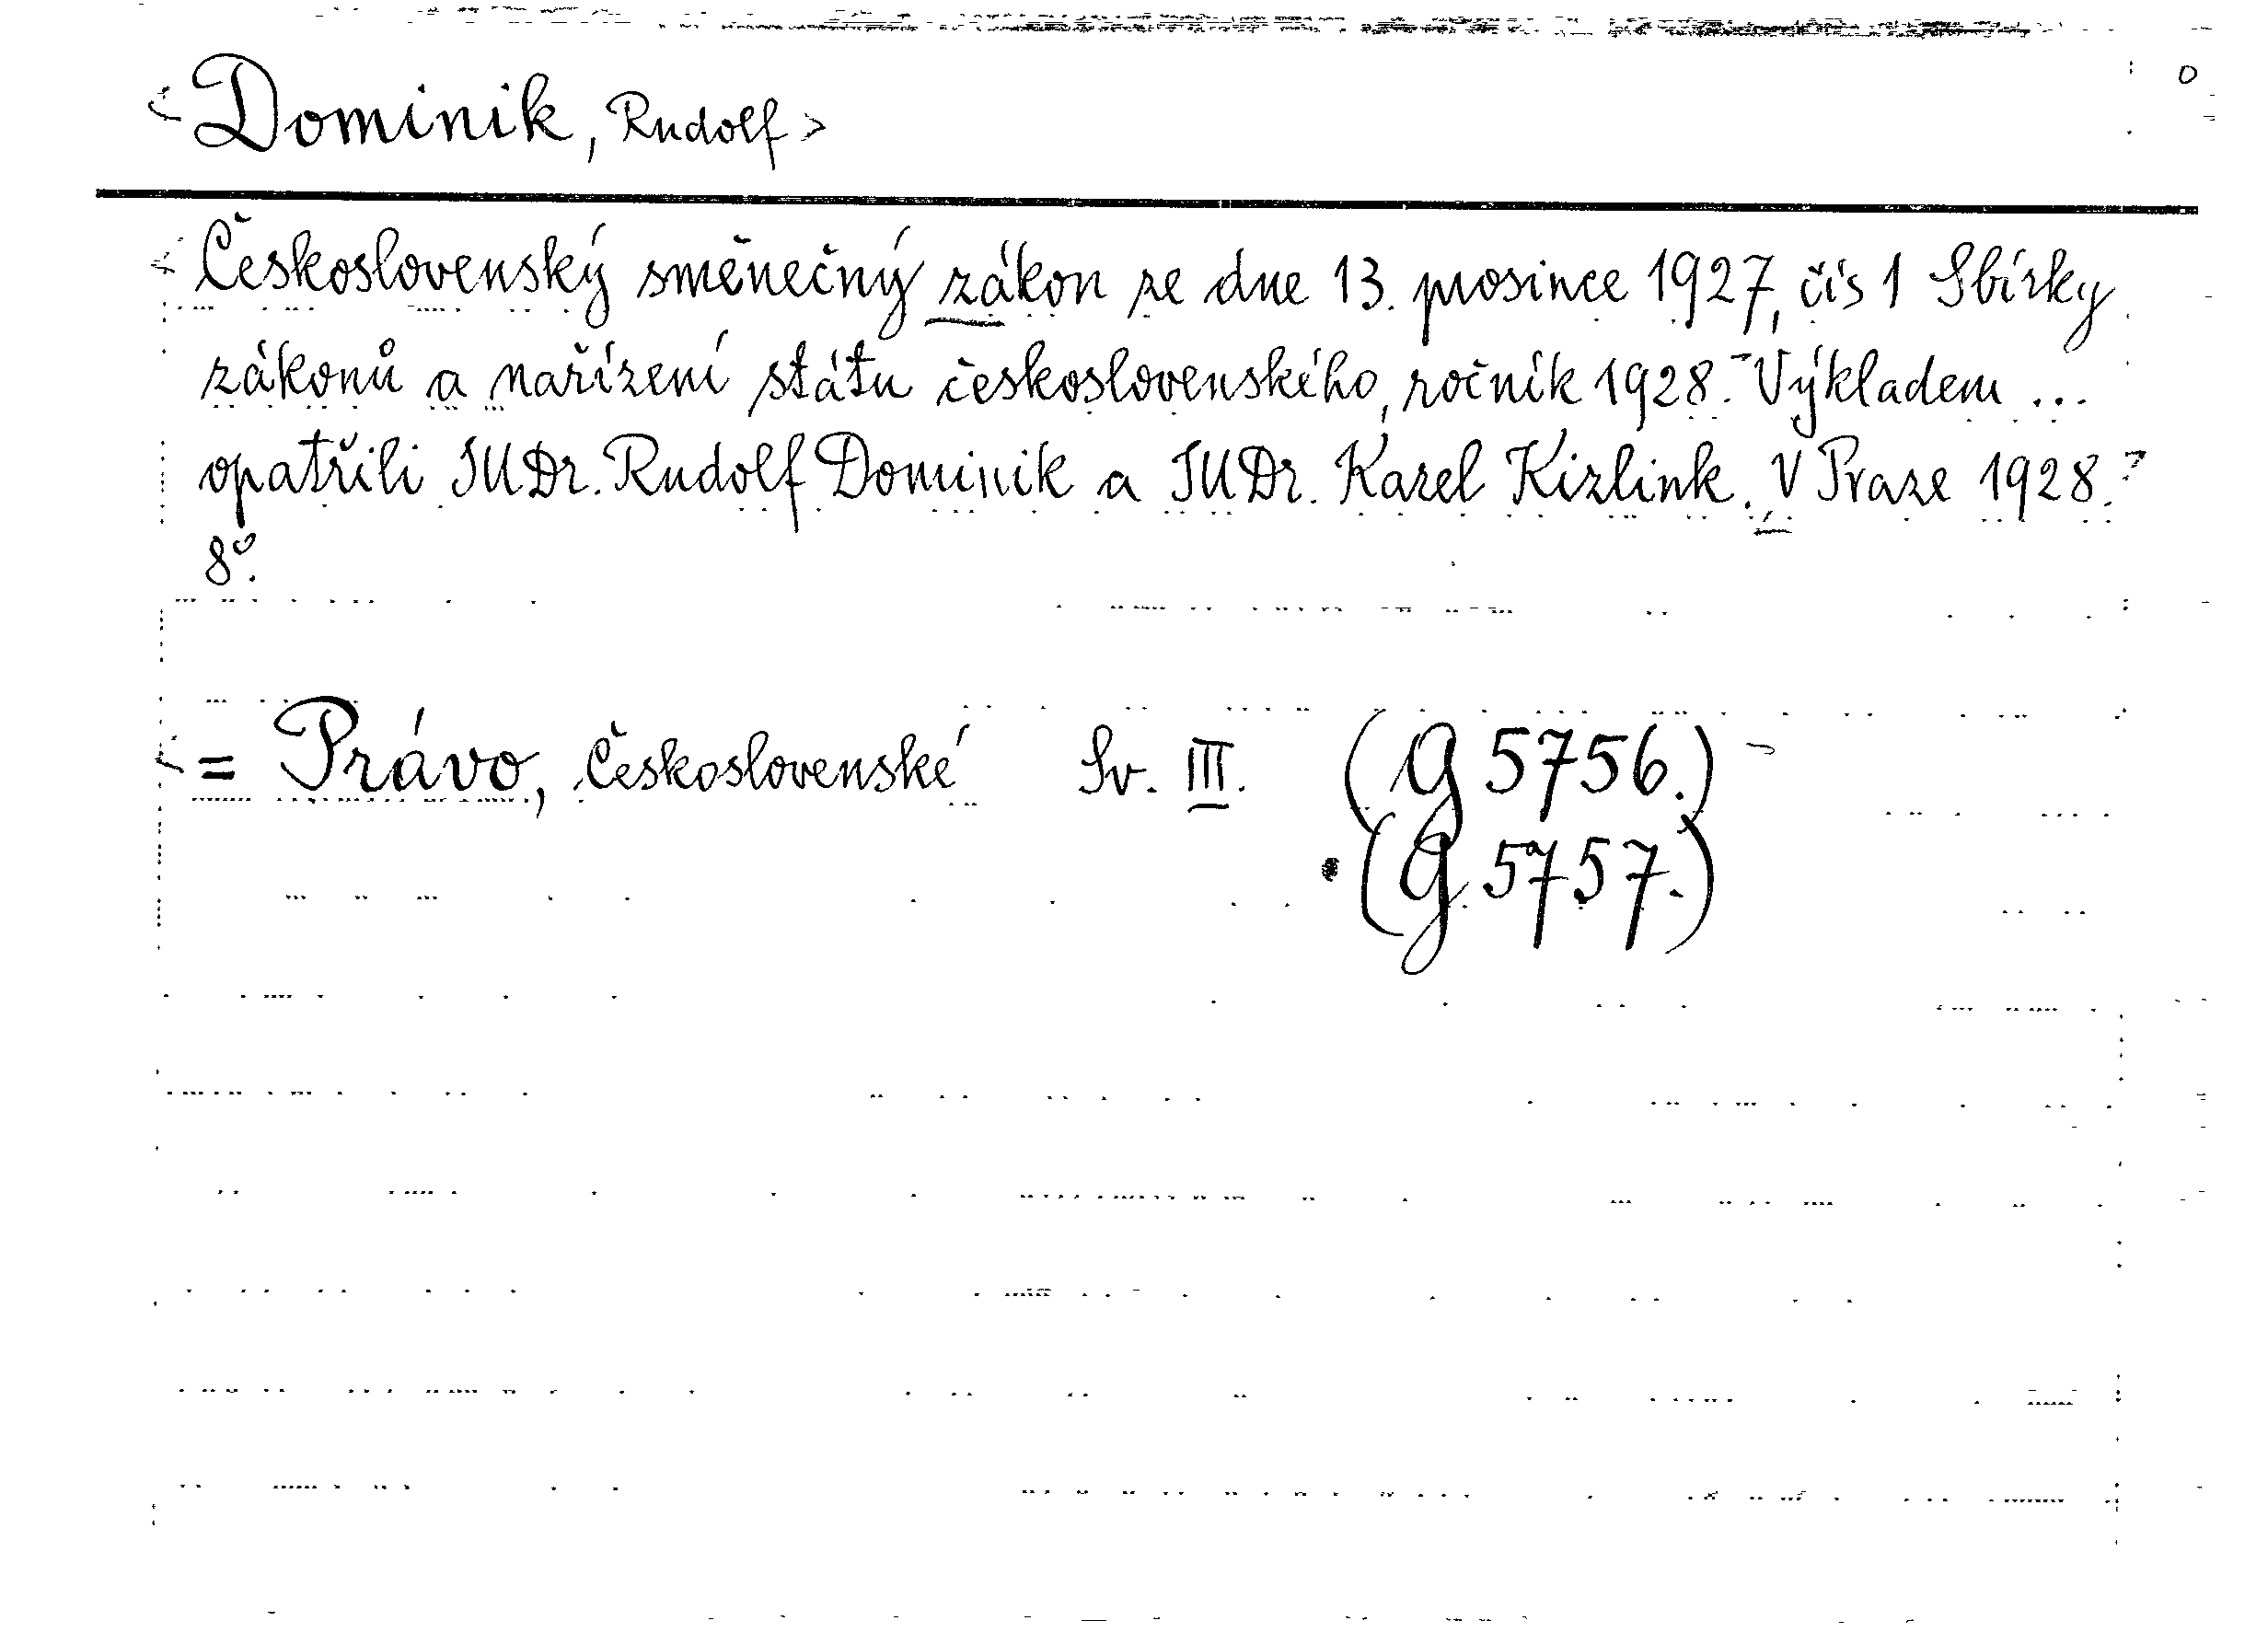 <Dominik, Rudolf>
Československý směnečný zákon ze dne 13. prosince 1927, čís 1 Sbírky
zákonů a nařízení státu československého, ročník 1928. - Výkladem ...
opatřili JUDr. Rudolf Dominik a JUDr. Karel Kizlink. V Praze 1928.
8°.
= Právo, Československé Sv. III. (G 5756.)
(G 5757.)